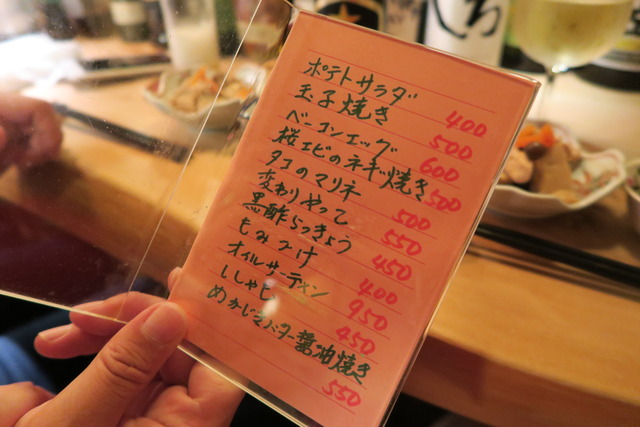 ポテトサラダ 400
玉子焼き 500
ベーコンエッグ 600
桜エビのネギ焼き 500
タコのマリネ 500
変わりやっこ 550
黒酢らっきょう 450
もみづけ 400
オイルサーディン 950
ししゃも 450
めかじきバター醤油焼き 550